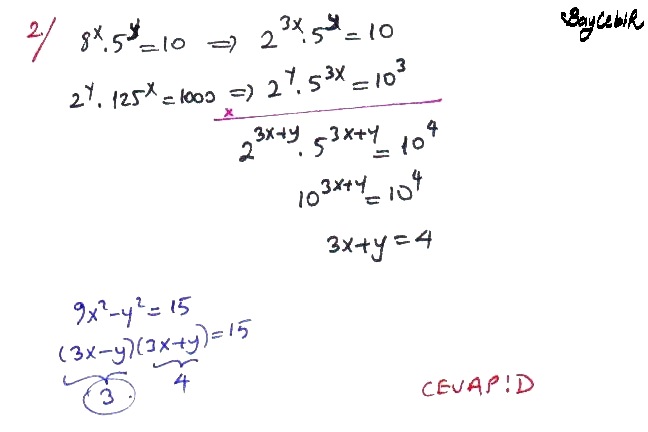 BayCebiR
2/ 8^x.5^y=10 ⇒ 2^3x.5^y=10
2^y.125^x=1000 ⇒ 2^y.5^3x=10^3
x
2^3x+y.5^3x+y=10^4
10^3x+y=10^4
3x+y=4
9x²-y²=15
(3x-y)(3x+y)=15
3 4
CEVAP!D